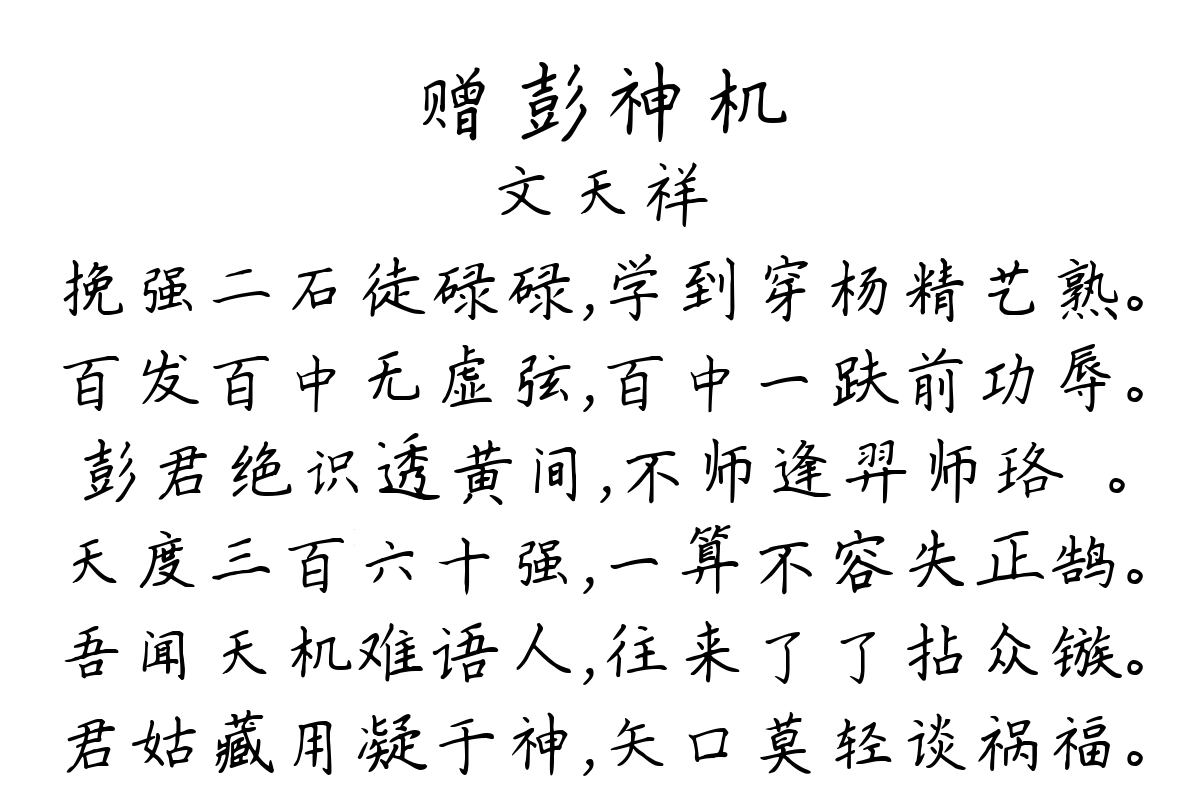 赠彭神机
文天祥
挽强二石徒碌碌,学到穿杨精艺熟。
百发百中无虚弦,百中一跌前功辱。
彭君绝识透黄间,不师逢羿师珞 。
天度三百六十强,一算不容失正鹄。
吾闻天机难语人,往来了了拈众镞。
君姑藏用凝于神,矢口莫轻谈祸福。